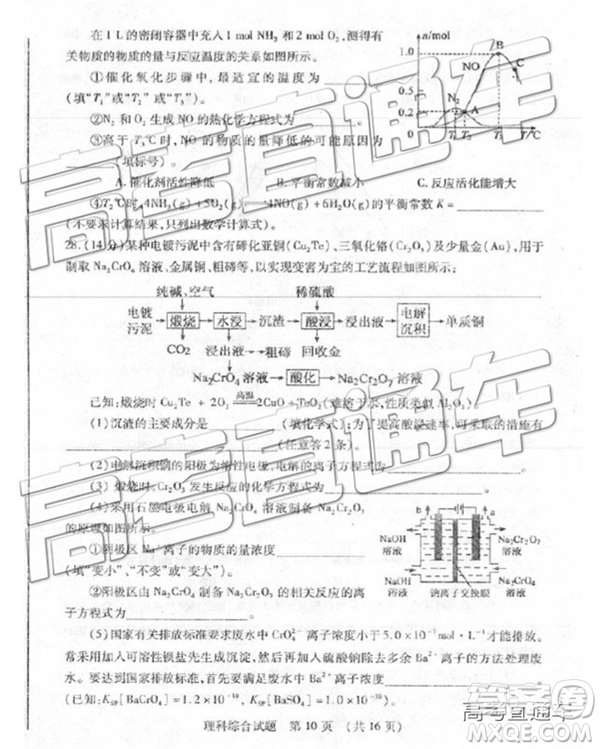 在 1 L 的密闭容器中充入 1 mol NH₃ 和 2 mol O₂, 测得有
关物质的物质的量与反应温度的关系如图所示。
①催化氧化步骤中, 最适宜的温度为
(填“T₁”或“T₂”或“T₃”)。
②N₂ 和 O₂ 生成 NO 的热化学方程式为
③高于 T₃℃时, NO 的物质的量降低的可能原因为
(填标号)。
A. 催化剂活性降低 B. 平衡常数减小 C. 反应活化能增大
④T₂℃时, 4NH₃(g)+5O₂(g)⇌4NO(g)+6H₂O(g)的平衡常数 K=
(不要求计算结果, 只列出数学计算式)。
n/mol
1.0
0.8
0.6
0.4
0.2
0
B
C
NO
N₂
A
T/℃
28. (14 分)某种电镀污泥中含有碲化亚铜(Cu₂Te)、三氧化铬(Cr₂O₃)及少量金(Au), 用于
制取 Na₂CrO₄ 溶液、金属铜、粗碲等, 以实现变害为宝的工艺流程如图所示:
纯碱、空气 稀硫酸
电镀污泥 煅烧 水浸 沉渣 酸浸 浸出液 电解沉积 单质铜
CO₂ 浸出液 粗碲 回收金
Na₂CrO₄ 溶液 酸化 Na₂Cr₂O₇ 溶液
已知: 煅烧时 Cu₂Te + 2O₂ 高温 2CuO + TeO₂(难溶于水, 性质类似 Al₂O₃)。
(1)沉渣的主要成分是 (填化学式); 为了提高酸浸速率, 可采取的措施有
(任意答 2 条)。
(2)电解沉积铜的阳极为惰性电极, 电解的离子方程式为
(3) 煅烧时, Cr₂O₃ 发生反应的化学方程式为
(4)采用石墨电极电解 Na₂CrO₄ 溶液制备 Na₂Cr₂O₇
的原理如图所示。
①阴极区 Na⁺ 离子的物质的量浓度
(填“变小”、“不变”或“变大”)。
②阳极区由 Na₂CrO₄ 制备 Na₂Cr₂O₇ 的相关反应的离
子方程式为
b
a
NaOH溶液
Na₂Cr₂O₇溶液
NaOH溶液
Na₂CrO₄溶液
钠离子交换膜
(5)国家有关排放标准要求废水中 CrO₄²⁻ 离子浓度小于 5.0×10⁻⁷mol·L⁻¹ 才能排放。
常采用加入可溶性钡盐先生成沉淀, 然后再加入硫酸钠除去多余 Ba²⁺ 离子的方法处理废
水。已知: Kₛₚ[BaCrO₄]=1.2×10⁻¹⁰, Kₛₚ[BaSO₄]=1.0×10⁻¹⁰,
理科综合试题 第 10 页 (共 16 页)
高考直通车
高考直通车
高考直通车
答案圈
MXQE.COM